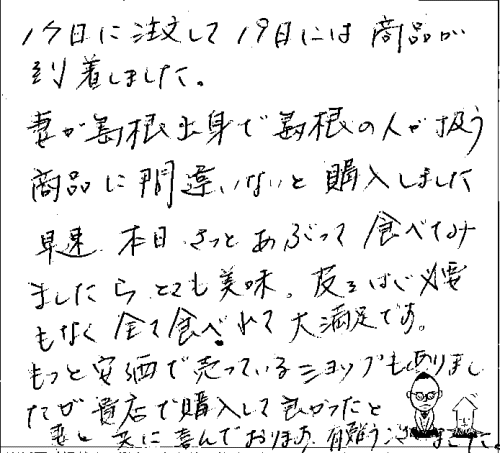 17日に注文して19日には商品が
到着しました。
妻が島根出身で島根の人が扱う
商品に間違いないと購入しました
早速 本日 さっとあぶって食べてみ
ましたら とても美味。皮をはぐ必要
もなく全て食べれて大満足です。
もっと安価で売っているショップもありまし
たが貴店で購入して良かったと
妻と共に喜んでおります。有難うございました。